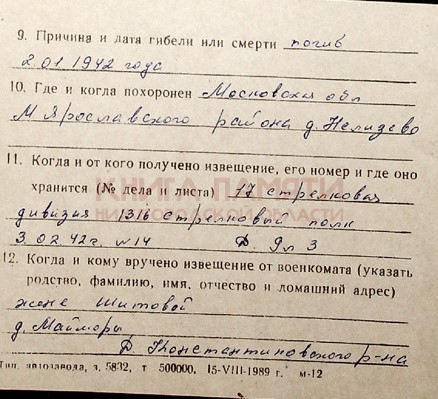 9. Причина и дата гибели или смерти погиб
2.01 1942 года
10. Где и когда похоронен Московская обл
М Ярославского района д. Нелидево
11. Когда и от кого получено извещение, его номер и где оно
хранится (№ дела и листа) 17 стрелковая
КНИГА ПАМЯТИ
дивизия 1316 стрелковый полк
НИЖЕГОРОДСКОЙ ОБЛАСТИ
3.02.42г. №14 Д. 9л 3
12. Когда и кому вручено извещение от военкомата (указать
родство, фамилию, имя, отчество и домашний адрес)
жене Шитовой
д. Майморы
Д. Константиновского р-на
Тип. автозавода, з. 5832, т 500000. 15-VIII-1989 г. м-12